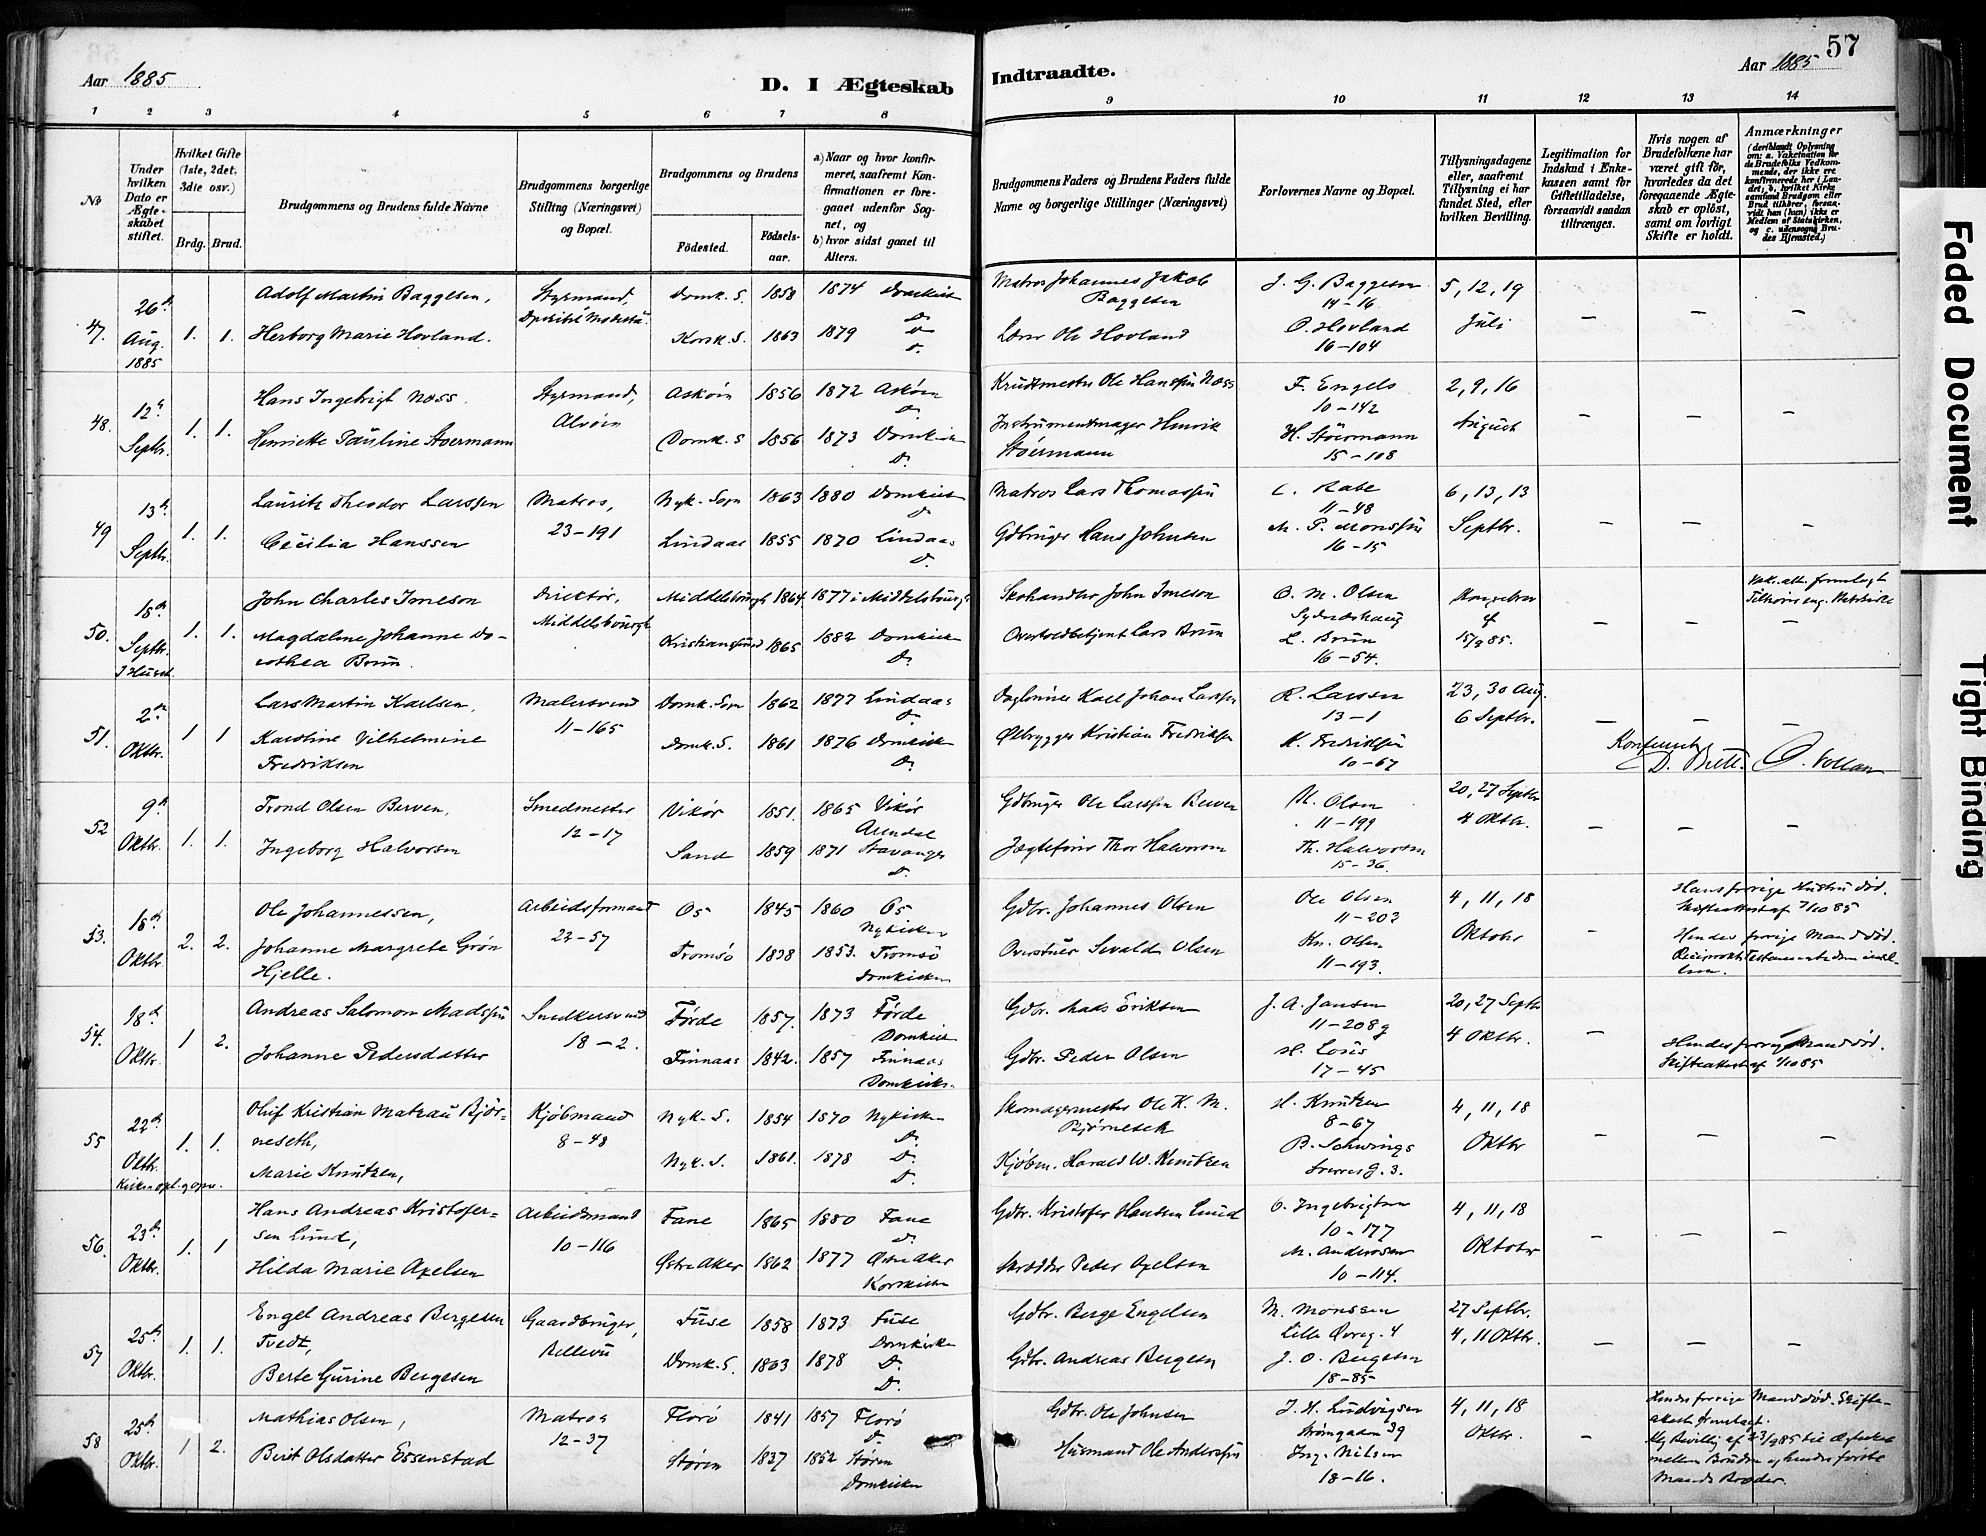 57
Aar 1885
D. I Ægteskab
Indtraadte.
Aar 1885
1 2 3 4 5 6 7 8 9 10 11 12 13 14
No
Under hvilken Dato er Ægteskabet stiftet.
Hvilket Gifte (1ste, 2det, 3die osv.)
Brdg. Brud.
Brudgommens og Brudens fulde Navne
Brudgommens borgerlige Stilling (Næringsvei) og Bopæl.
Brudgommens og Brudens
Födested. Födselsaar.
a) Naar og hvor konfirmeret, saafremt Konfirmationen er foregaaet udenfor Sognet, og
b) hvor sidst gaaet til Alters.
Brudgommens Faders og Brudens Faders fulde Navne og borgerlige Stillinger (Næringsvei)
Forlovernes Navne og Bopæl.
Tillysningsdagene eller, saafremt Tillysning ei har fundet Sted, efter hvilken Bevilling.
Legitimation for Indskud i Enkekassen samt for Giftetilladelse, forsaavidt saadan tiltrænges.
Hvis nogen af Brudefolkene har været gift för, hvorledes da det foregaaende Ægteskab er oplöst, samt om lovligt Skifte er holdt.
Anmærkninger (deriblandt Oplysning om: a. Vaksination for de Brudefolks Vedkommende, der ikke ere konfirmerede her i Landet; b. hvilket Kirkesamfund Brudgom eller Brud tilhører, forsaavidt han (hun) ikke er Medlem af Statskirken, og c. udensogns Brudes Hjemsted.)
47. 26de Aug. 1885 1. 1.
Adolf Martin Baggesen, Styrmand, Domk. S. 1858 1874 Domkirk D.
Herborg Marie Hovland. Korsk. S. 1863 1879 D. D.
Matros Johannes Jakob Baggesen
Lærer Ole Hovland
J. G. Baggesen 14-16
O. Hovland 16-104
5, 12, 19 Juli
- - -
48. 12te Septbr. 1. 1.
Hans Ingebrigt Næss. Styrmand, Alvøen Askøen 1856 1872 Askøen D.
Henriette Pauline Støermann Domk. S 1856 1873 Domkirk D.
Krudtmester Ole Hanssen Næss
Instrumentmager Henrik Støermann
F. Engels 10-142
H. Störmann 15-108
2, 9, 16 August
- - -
49 13de Septbr. 1. 1.
Lauritz Theodor Larssen Matros, 23-191 Nyk. Sogn 1863 1880 Domkirk D
Cecilia Hanssen Lindaas 1855 1870 Lindaas D.
Matros Lars Thomassen
Gdbruger Hans Johnsen
C. Rabe 11-48
M. P. Monssen 16-15
6, 13, 13 Septbr.
- - -
50. 18de Septbr. I Huset. 1. 1.
John Charles Imeson Direktør, Middelsbourgh Middelsbourgh 1864 1877 i Middelsbourgh
Magdalene Johanne Dorothea Brun. Kristianssund 1865 1882 Domkirken D.
Skohandler John Imeson
Overtoldbetjent Lars Brun
O. M. Olsen Sydneshaug
L. Brun 16-54.
Kongebrev af 15/9 85.
- -
Vak. att. fremlagt
Tilhører eng. Statskirke
51. 2den Oktbr. 1 1
Lars Martin Karlsen, Malersvend 11-165 Domk. Sogn 1862 1877 Lindaas D.
Karoline Vilhelmine Fredriksen Domk. S. 1861 1876 Domkirken D.
Daglønner Karl Johan Larssen
Ølbrygger Kristian Fredriksen
R. Larsen 13-1
K. Fredriksen 10-67
23, 30 Aug. 6 Septbr.
- - -
52 9de Oktbr. 1. 1.
Trond Olsen Berven, Smedmester 12-17 Vikør 1851. 1865 Vikør Arendal
Ingeborg Halvorsen Sand 1859 1871 Stavanger D.
Gdbruger Ole Larssen Berven
Jægtefører Thor Halvorsen
M. Olsen 11-199
Th. Halvorsen 15-36.
20, 27 Septbr 4 Oktbr.
- - -
53. 18de Oktbr 2. 2.
Ole Johannessen, Arbeidsformand 22-57 Os 1845 1860 Os Nykirken
Johanne Margrete Grøn Hjelle. Tromsö 1828 1853. Tromsö Domkirken
Gdbr. Johannes Olsen
Overstuer Sevald Olsen
Ole Olsen 11-203
Kn. Olsen 11-193.
4, 11, 18 Oktobr
-
Hans forrige Hustru död. Skifteattest af 7/10 85
Hendes forrige Mand död.
54. 18de Oktbr. 1 2.
Andreas Salomon Madssen Snedkersvend 18-2. Førde 1857. 1873 Førde Domkirk
Johanne Pedersdatter Finnaas 1842. 1857 Finnaas Domkirk.
Gdbr. Mads Eriksen
Gdbr. Peder Olsen
J. A. Jansen 11-208g
H. Louis 17-45
20, 27 Septb 4 Oktbr.
-
Hendes forrige Mand död. Skifteattest af 1/10 85
55 22de Oktbr. 1. 1.
Oluf Kristian Matzau Bjørneseth, Kjøbmand 8-48 Nyk. S. 1854 1870 Nykirken D.
Marie Knutzen, Nyk. S. 1861. 1878 D. D.
Skomagermester Ole K. M. Bjørneseth
Kjøbm. Harald W. Knutzen
H. Knutzen 8-67
B. Schwings
4, 11, 18 Oktbr
- - -
56. 23de Oktbr. 1. 1
Hans Andreas Kristofersen Lund, Arbeidsmand 10-116 Fane 1865 1880 Fane D.
Hilda Marie Axelsen Østre Aker 1862 1877 Østre Aker Korskirken
Gdbr. Kristofer Hanssen Lund
Skrædder Peder Axelsen
O. Ingebrigtsen 10-177
M. Anderssen 10-114.
4, 11, 18 Oktober
- - -
57 25de Oktbr. 1. 1.
Engel Andreas Bergesen Tvedt, Gaardbruger, Bellevu Fuse 1858 1873 Fuse Domkirken
Berte Gurine Bergesen Domk. S. 1863 1878 D. D.
Gdbr. Berge Engelsen
Gdbr. Andreas Bergesen
M. Monssen Lille Øvreg. 4
J. O. Bergesen 18-85
27 Septbr. 4, 11 Oktbr.
- - -
58 25de Oktbr. 1 2.
Mathias Olsen, Matros 12-37 Florö 1841 1857 Florö D
Berit Olsdatter Essenstad Støren 1827 1852 Støren Domkirken
Gdbr. Ole Johnsen
Husmand Ole Anderssen
J. H. Ludvigsen Strømgaden 39
Ing. Nilsen 18-16.
4, 11, 18 Oktbr.
-
Hendes forrige Mand död. Skifteattest fremlagt.
Kg Bevillg af 23/9 85 til Ægteskab mellem Bruden og hendes første Mands Broder.
Faded Document
Tight Binding